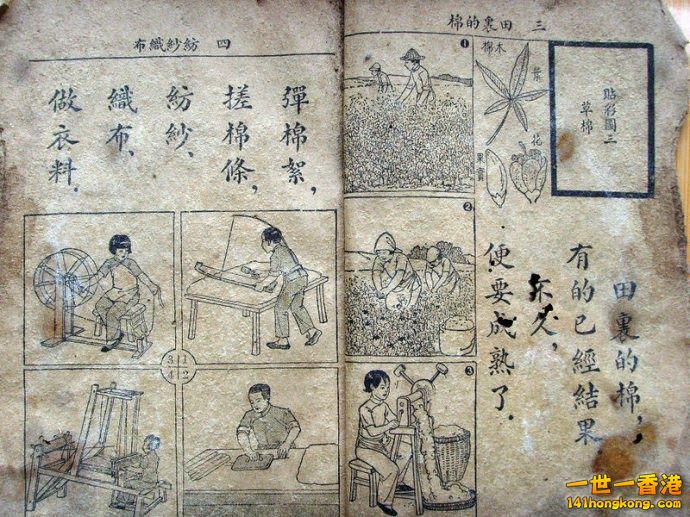 三 田裏的棉
貼彩圖三
草棉
木棉
葉
花
果實
田裏的棉,
有的已經結果
不久,
便要成熟了.
1
2
3
四 紡紗織布
彈棉絮,
搓棉條,
紡紗,
織布,
做衣料.
3 1
4 2
一世一香港
141hongkong.com